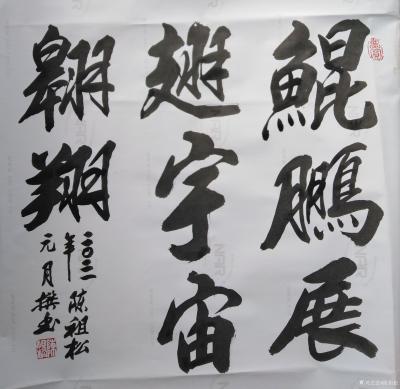 鲲鹏展
翅宇宙
翱翔
二〇二一年
元月 陈祖松撰书